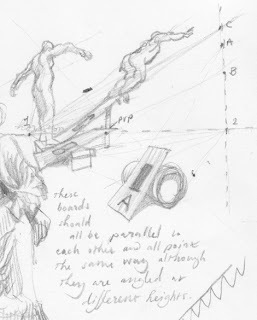 C
A
B
1
PVP
2
A
6
these
boards
should
all be parallel to
each other and all point
the same way although
they are angled at
different heights.